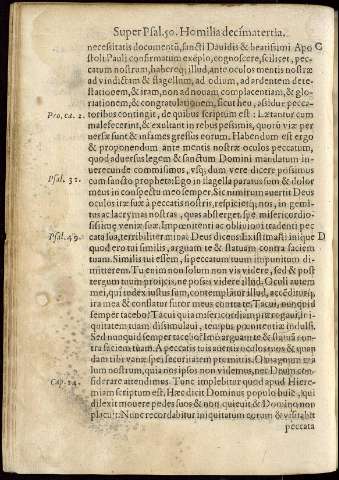 Super Psal. 50. Homilia decimatertia.
necessitatis documentũ, sancti Dauidis & beatissimi Apo C
stoli Pauli confirmatum exẽplo, cognoscere, scilicet, pec-
catum nostrum, habereq; illud, ante oculos mentis nostræ
ad vindictam & flagellum, ad odium, ad ardentem dete-
stationem, & iram, non ad nouam complacentiam, & glo-
riationem, & congratulationem, sicut heu, assiduè pecca-
Pro. ca. 2. toribus contingit, de quibus scriptum est: Lætantur cum
malefecerint, & exultant in rebus pessimis, quorũ viæ per
uersæ sunt & infames gressus eorum. Habendum est ergo
& proponendum ante mentis nostræ oculos peccatum,
quod aduersus legem & sanctum Domini mandatum in-
uerecunde commisimus, vsq; dum vere dicere possimus
Psal. 37. cum sancto propheta: Ego in flagella paratus sum & dolor
meus in conspectu meo semper. Sic nimirum auertit Deus
oculos iræ suæ à peccatis nostris, respicietq; nos, in gemi-
tus ac lacrymas nostras, quas absterget spẽ misericordio-
sissimę veniæ suæ. Impœnitenti ac obliuioni tradenti pec
Psal. 49. cata sua, terribiliter minat Deus dicens: Existimasti iniquè D
quod ero tui similis, arguam te & statuam contra faciem
tuam. Similis tui essem, si peccatum tuum impunitum di-
mitterem. Tu enim non solum non vis videre, sed & post
tergum tuum proijcis, ne possis videre illud. Oculi autem
mei, qui index iustus sum, contemplātur illud, accēditurq;
ira mea & constatur furor meus contra te. Tacui, nunquid
semper tacebo? Tacui quia misericordiam
quitatem tuam dissimulaui, tempus pœnitentiæ indulsi.
Sed nunquid semper tacebo? Imò arguam te & statuā con-
tra faciem tuam. A peccatis tuis auertis oculos tuos & quan
dam tibi vanæ spei securitatem promittis. O
lum nostrum, quia nos ipsos non videmus, nec Deum con-
Cap. 14. siderare attendimus. Tunc implebitur quod apud Hiere-
miam scriptum est. Hæc dicit Dominus populo huic, qui
dilexit mouere pedes suos & non quieuit & Domino non
placuit: Nunc recordabitur iniquitatum eorum & visitabit
peccata